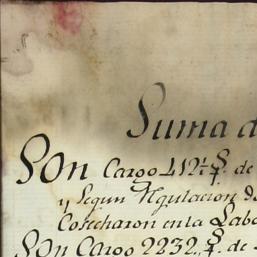 Suma d
Son Cargo 412½ f.s de
y Segun Rgulacion de
Cosecharon en la Labo
Son Cargo 2232,, f.s de